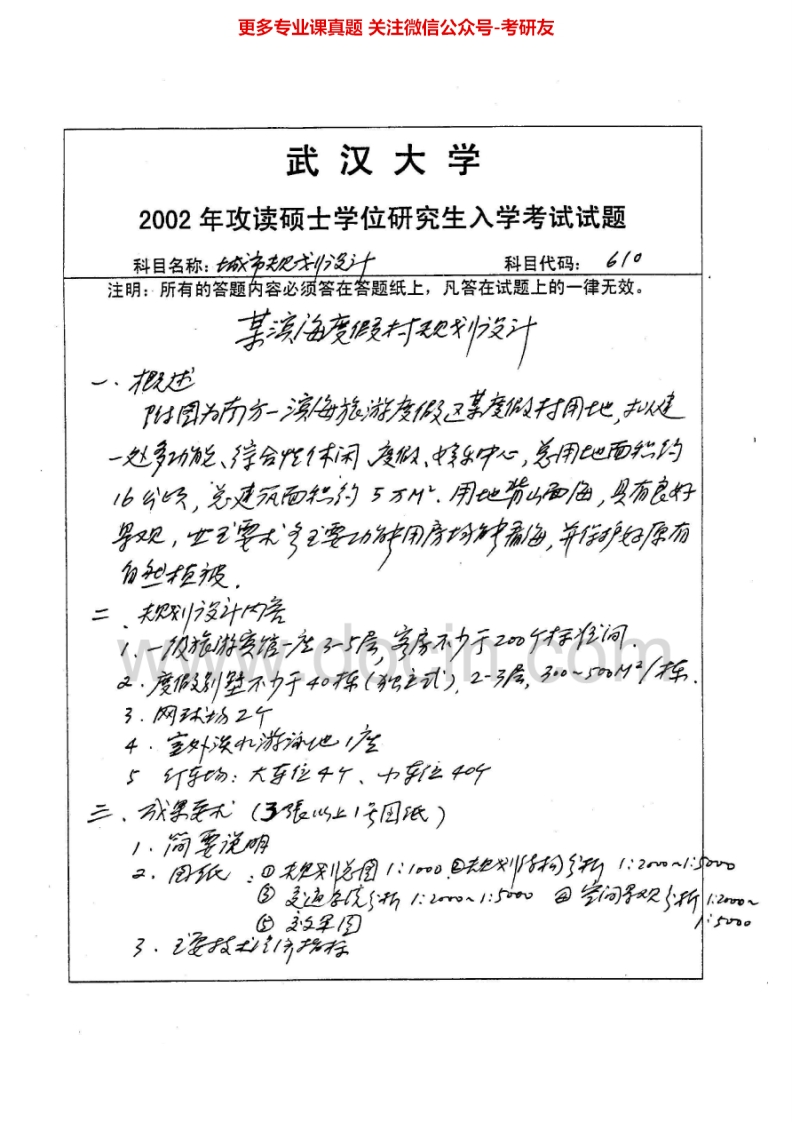 更多专业课真题 关注微信公众号-考研友
武 汉 大 学
2002 年攻读硕士学位研究生入学考试试题
科目名称：城市规划设计 科目代码： 610
注明：所有的答题内容必须答在答题纸上，凡答在试题上的一律无效。
某滨海度假村规划设计
一、概述
附图为南方一滨海旅游度假区某度假村用地，拟建
一处多功能、综合性休闲、度假、娱乐中心，总用地面积约
16公顷，总建筑面积约 5万M². 用地背山面海，具有良好
景观，业主要求各主要功能用房均能看海，并保护好原有
自然植被.
二、规划设计内容
1. 一级旅游宾馆一座 3-5层，客房不少于200个标准间.
2. 度假别墅不少于40栋(独立式)，2-3层，300~500M²/栋.
3. 网球场2个
4. 室外淡水游泳池1座
5 停车场：大车位4个、小车位40个
三、成果要求 (3张以上1号图纸)
1. 简要说明
2. 图纸：①规划总图 1:1000 ②规划结构分析 1:2000~1:5000
③ 交通系统分析 1:2000~1:5000 ④ 空间景观分析 1:2000~
1:5000
⑤ 效果图
3. 主要技术经济指标
www.docin.com